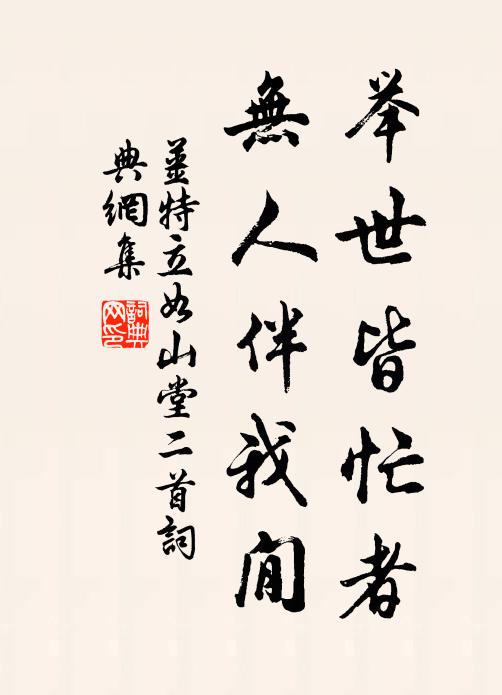 举世皆忙者
無人伴我閒
薑特立如山堂二首詞
典網集
詞典
网印